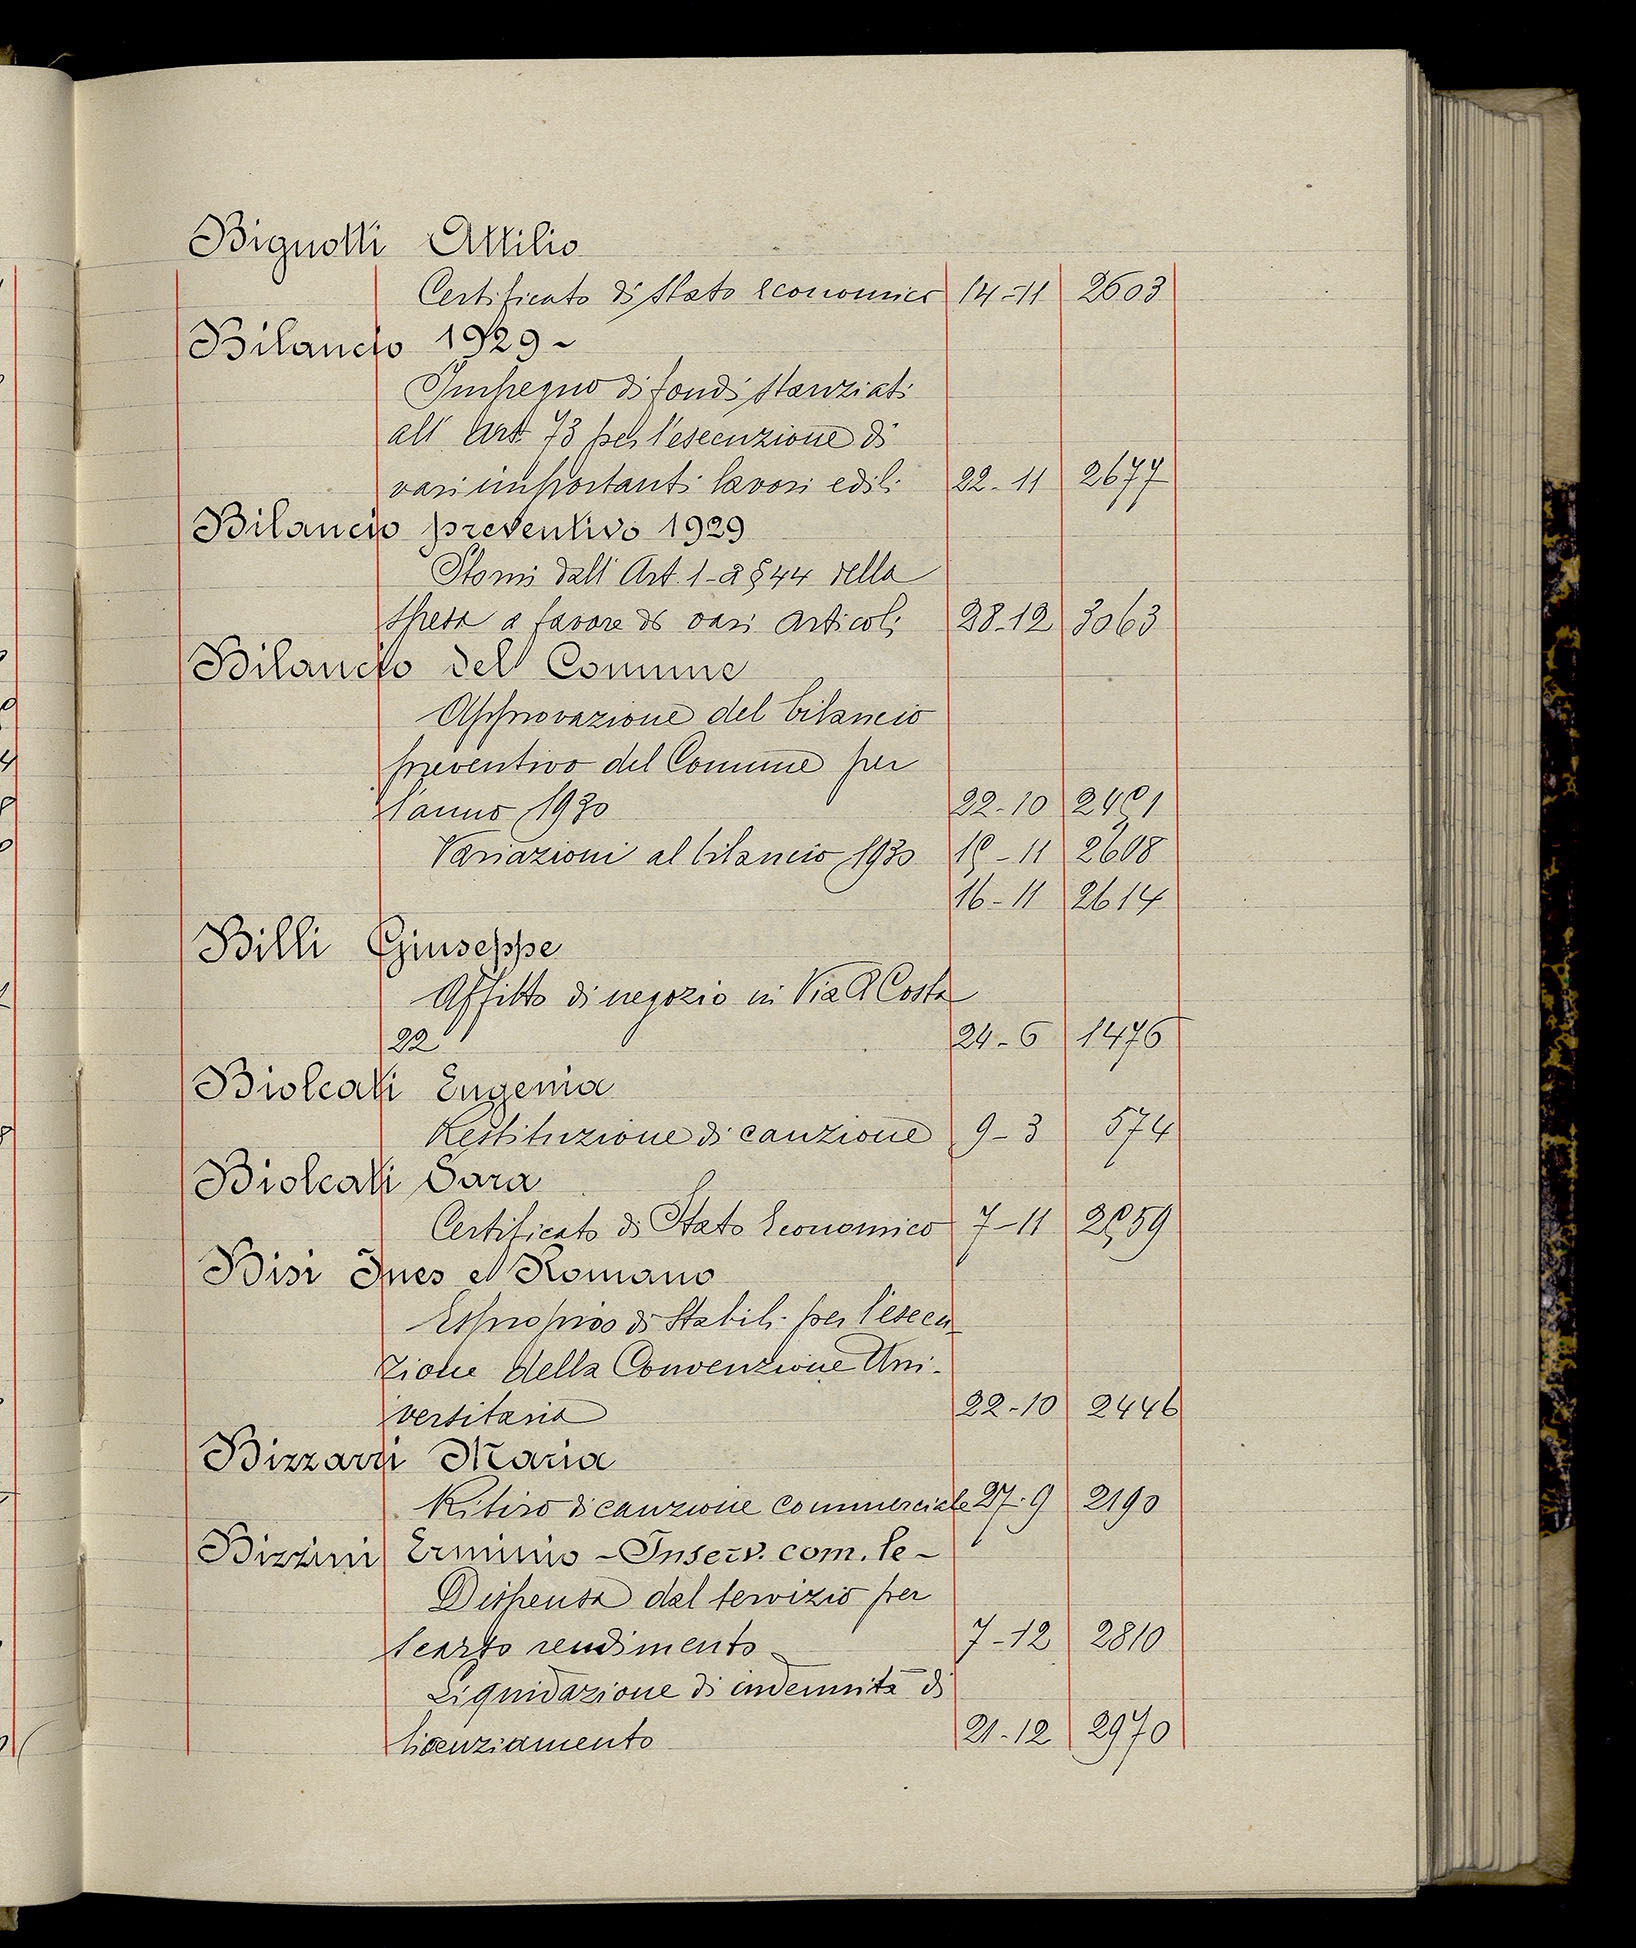 Bignotti Attilio
Certificato di stato economico 14-11 2603
Bilancio 1929-
Impegno di fondi stanziati
all' Art 73 per l'esecuzione di
vari importanti lavori edili 22-11 2677
Bilancio preventivo 1929
Storni dall' Art. 1-2 § 44 della
spesa a favore di vari articoli 28-12 3063
Bilancio del Comune
Approvazione del bilancio
preventivo del Comune per
l'anno 1930 22-10 2451
Variazioni al bilancio 1930 15-11 2608
16-11 2614
Billi Giuseppe
Affitto di negozio in Via A Costa
22 24-6 1476
Biolcati Eugenia
Restituzione di cauzione 9-3 574
Biolcati Sara
Certificato di Stato Economico 7-11 2559
Bisi Ines e Romano
Esproprio di Stabili per l'esecu-
zione della Convenzione Uni-
versitaria 22-10 2446
Bizzarri Maria
Ritiro di cauzione commerciale 27-9 2190
Bizzini Erminio - Inserv. com. le -
Dispensa dal servizio per
scarso rendimento 7-12 2810
Liquidazione di indennità di
licenziamento 21-12 2970